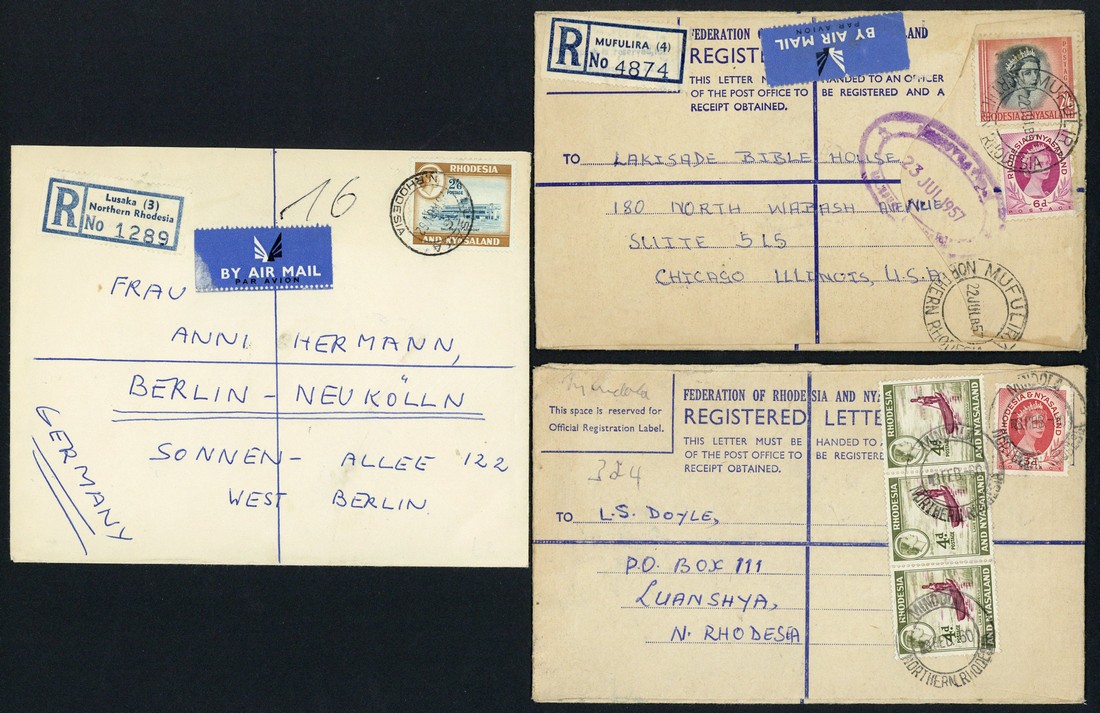 R
Lusaka (3)
Northern Rhodesia
No 1289
16
BY AIR MAIL
PAR AVION
2/6
POSTAGE
RHODESIA
AND NYASALAND
N. RHODESIA
FRAU
ANNI HERMANN,
BERLIN - NEUKÖLLN
SONNEN - ALLEE 122
WEST BERLIN
GERMANY
R
MUFULIRA (4)
No 4874
BY AIR MAIL
PAR AVION
FEDERATION OF
REGISTE
THIS LETTER M HANDED TO AN OFFICER
OF THE POST OFFICE TO BE REGISTERED AND A
RECEIPT OBTAINED.
POSTAGE
RHODESIA & NYASALAND
RHODESIA & NYASALAND
6d
MUFULIRA
23 JUL 1957
TO LAKISADE BIBLE HOUSE
180 NORTH WABASH AVENUE
SUITE 515
CHICAGO ILLINOIS, U.S.A.
MUFULIRA
22 JUL 57
NORTHERN RHODES
Mindola
This space is reserved for
Official Registration Label.
324
FEDERATION OF RHODESIA AND NYA
REGISTERED LETTE
THIS LETTER MUST BE HANDED TO
OF THE POST OFFICE TO BE REGISTERE
RECEIPT OBTAINED.
RHODESIA
4d
POSTAGE
AND NYASALAND
RHODESIA
4d
POSTAGE
AND NYASALAND
RHODESIA
4d
POSTAGE
AND NYASALAND
RHODESIA & NYASALAND
MINDOLA
FEB 60
NORTHERN RHODESIA
MINDOLA
NORTHERN RHODESIA
TO L.S. DOYLE,
P.O. BOX 111
LUANSHYA,
N. RHODESIA